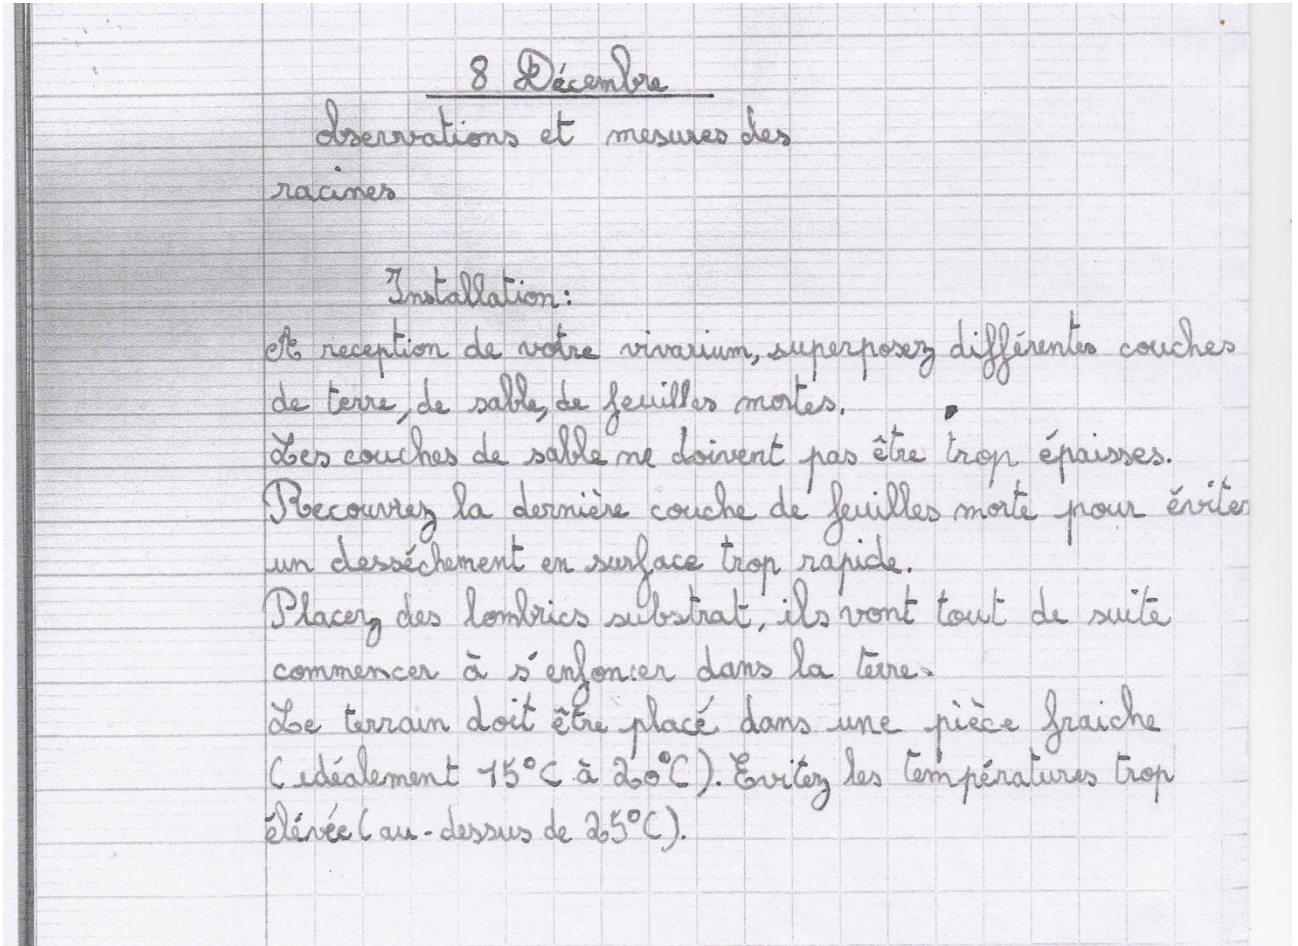 8 Décembre
Observations et mesures des
racines
Installation :
A reception de votre vivarium, superposez différentes couches
de terre, de sable, de feuilles mortes.
Les couches de sable ne doivent pas être trop épaisses.
Recouvrez la dernière couche de feuilles morte pour éviter
un desséchement en surface trop rapide.
Placez des lombrics substrat, ils vont tout de suite
commencer à s'enfoncer dans la terre.
Le terrain doit être placé dans une pièce fraiche
(idéalement 15°C à 20°C). Evitez les températures trop
élévée (au-dessus de 25°C).